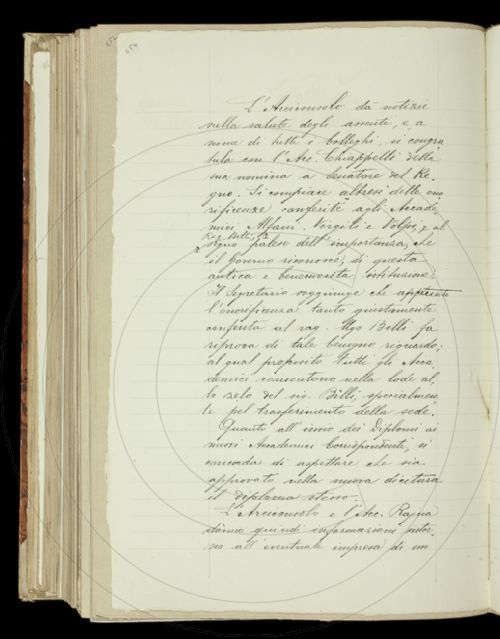 L'Arciconsolo dà notizie
sulla salute degli assenti, e a
nome di tutti i Colleghi, si congra
tula con l'Acc. Chiappelli della
sua nomina a Senatore del Re-
gno. Si compiace altresì delle ono
rificenze conferite agli Accade-
mici Alfani, Virgili e Volpi,
segno palese dell'importanza, che
il Governo riconosce, di questa
antica e benemerita istituzione.
Il Segretario soggiunge che appunto
l'onorificenza tanto giustamente
conferita al rag. Ugo Billi fa
riprova di tale benigno riguardo;
al qual proposito tutti gli Acca
demici consentono nella lode al
lo zelo del sig. Billi, specialmen
te pel trasferimento della sede.
Quanto all'invio dei Diplomi ai
nuovi Accademici Corrispondenti, si
concorda di aspettare che sia
approvato nella nuova dicitura
il diploma stesso.
L'Arciconsolo e l'Acc. Rajna
danno quindi informazioni intor-
no all'eventuale impresa di un